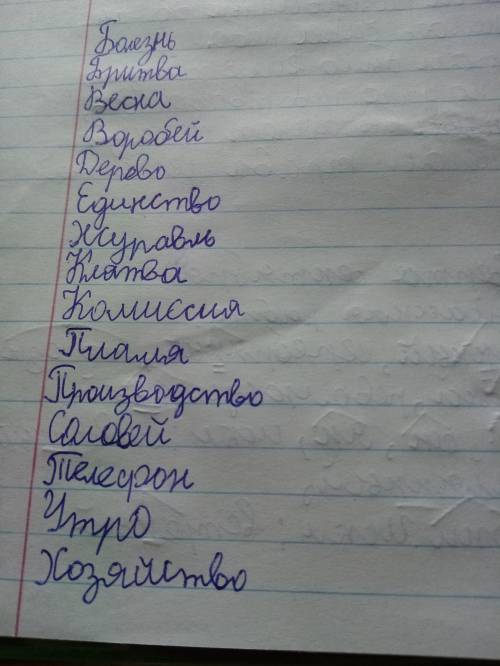 Болезнь
Бритва
Весна
Воробей
Дерево
Единство
Журавль
Клятва
Комиссия
Пламя
Производство
Соловей
Телефон
Утро
Хозяйство